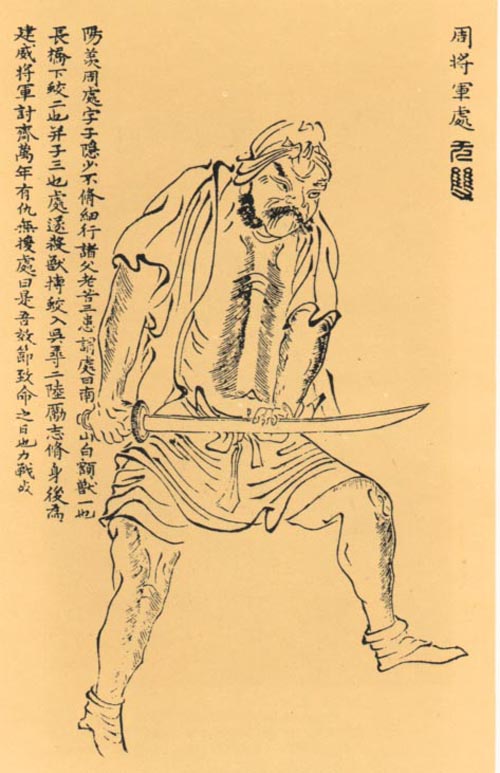 周將軍處 无雙
陽羨周處字子隱少不脩細行諸父老苦三患謂處曰南山白額獸一也
長橋下蛟二也并子三也處遂殺獸搏蛟入吳尋二陸勵志脩身後為
建威將軍討齊萬年有仇無援處曰是吾效節致命之日也力戰歿